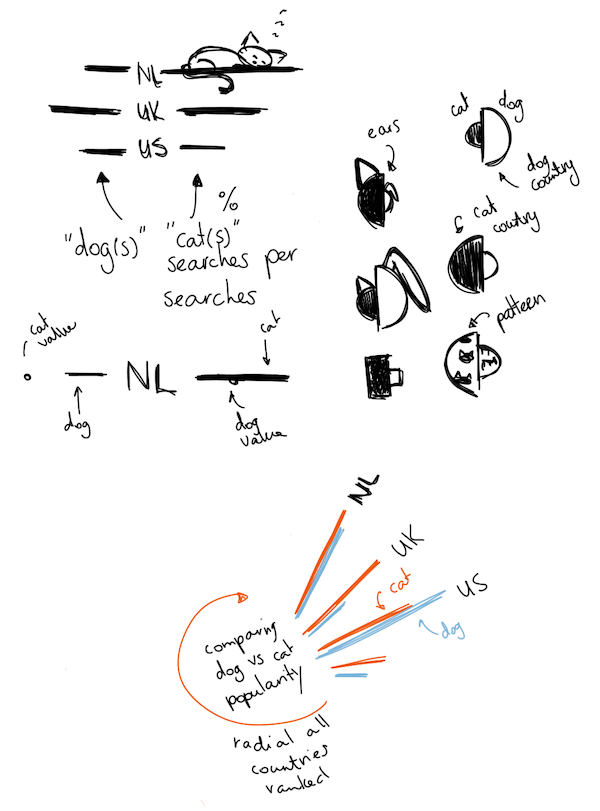 NL
UK
US
"dog(s)"
%
"cat(s)"
searches per
searches
ears
cat dog
dog
country
cat
country
pattern
cat
value
dog
NL
cat
dog
value
NL
UK
US
cat
dog
comparing
dog vs cat
popularity
radial all
countries
ranked